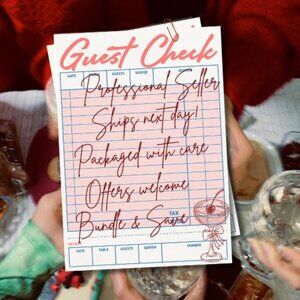 Guest Check
DATE GUESTS SERVER
Professional Seller
Ships next day!
Packaged with care
Offers welcome
Bundle & Save
TAX
DATE TABLE GUESTS SERVER NUMBER